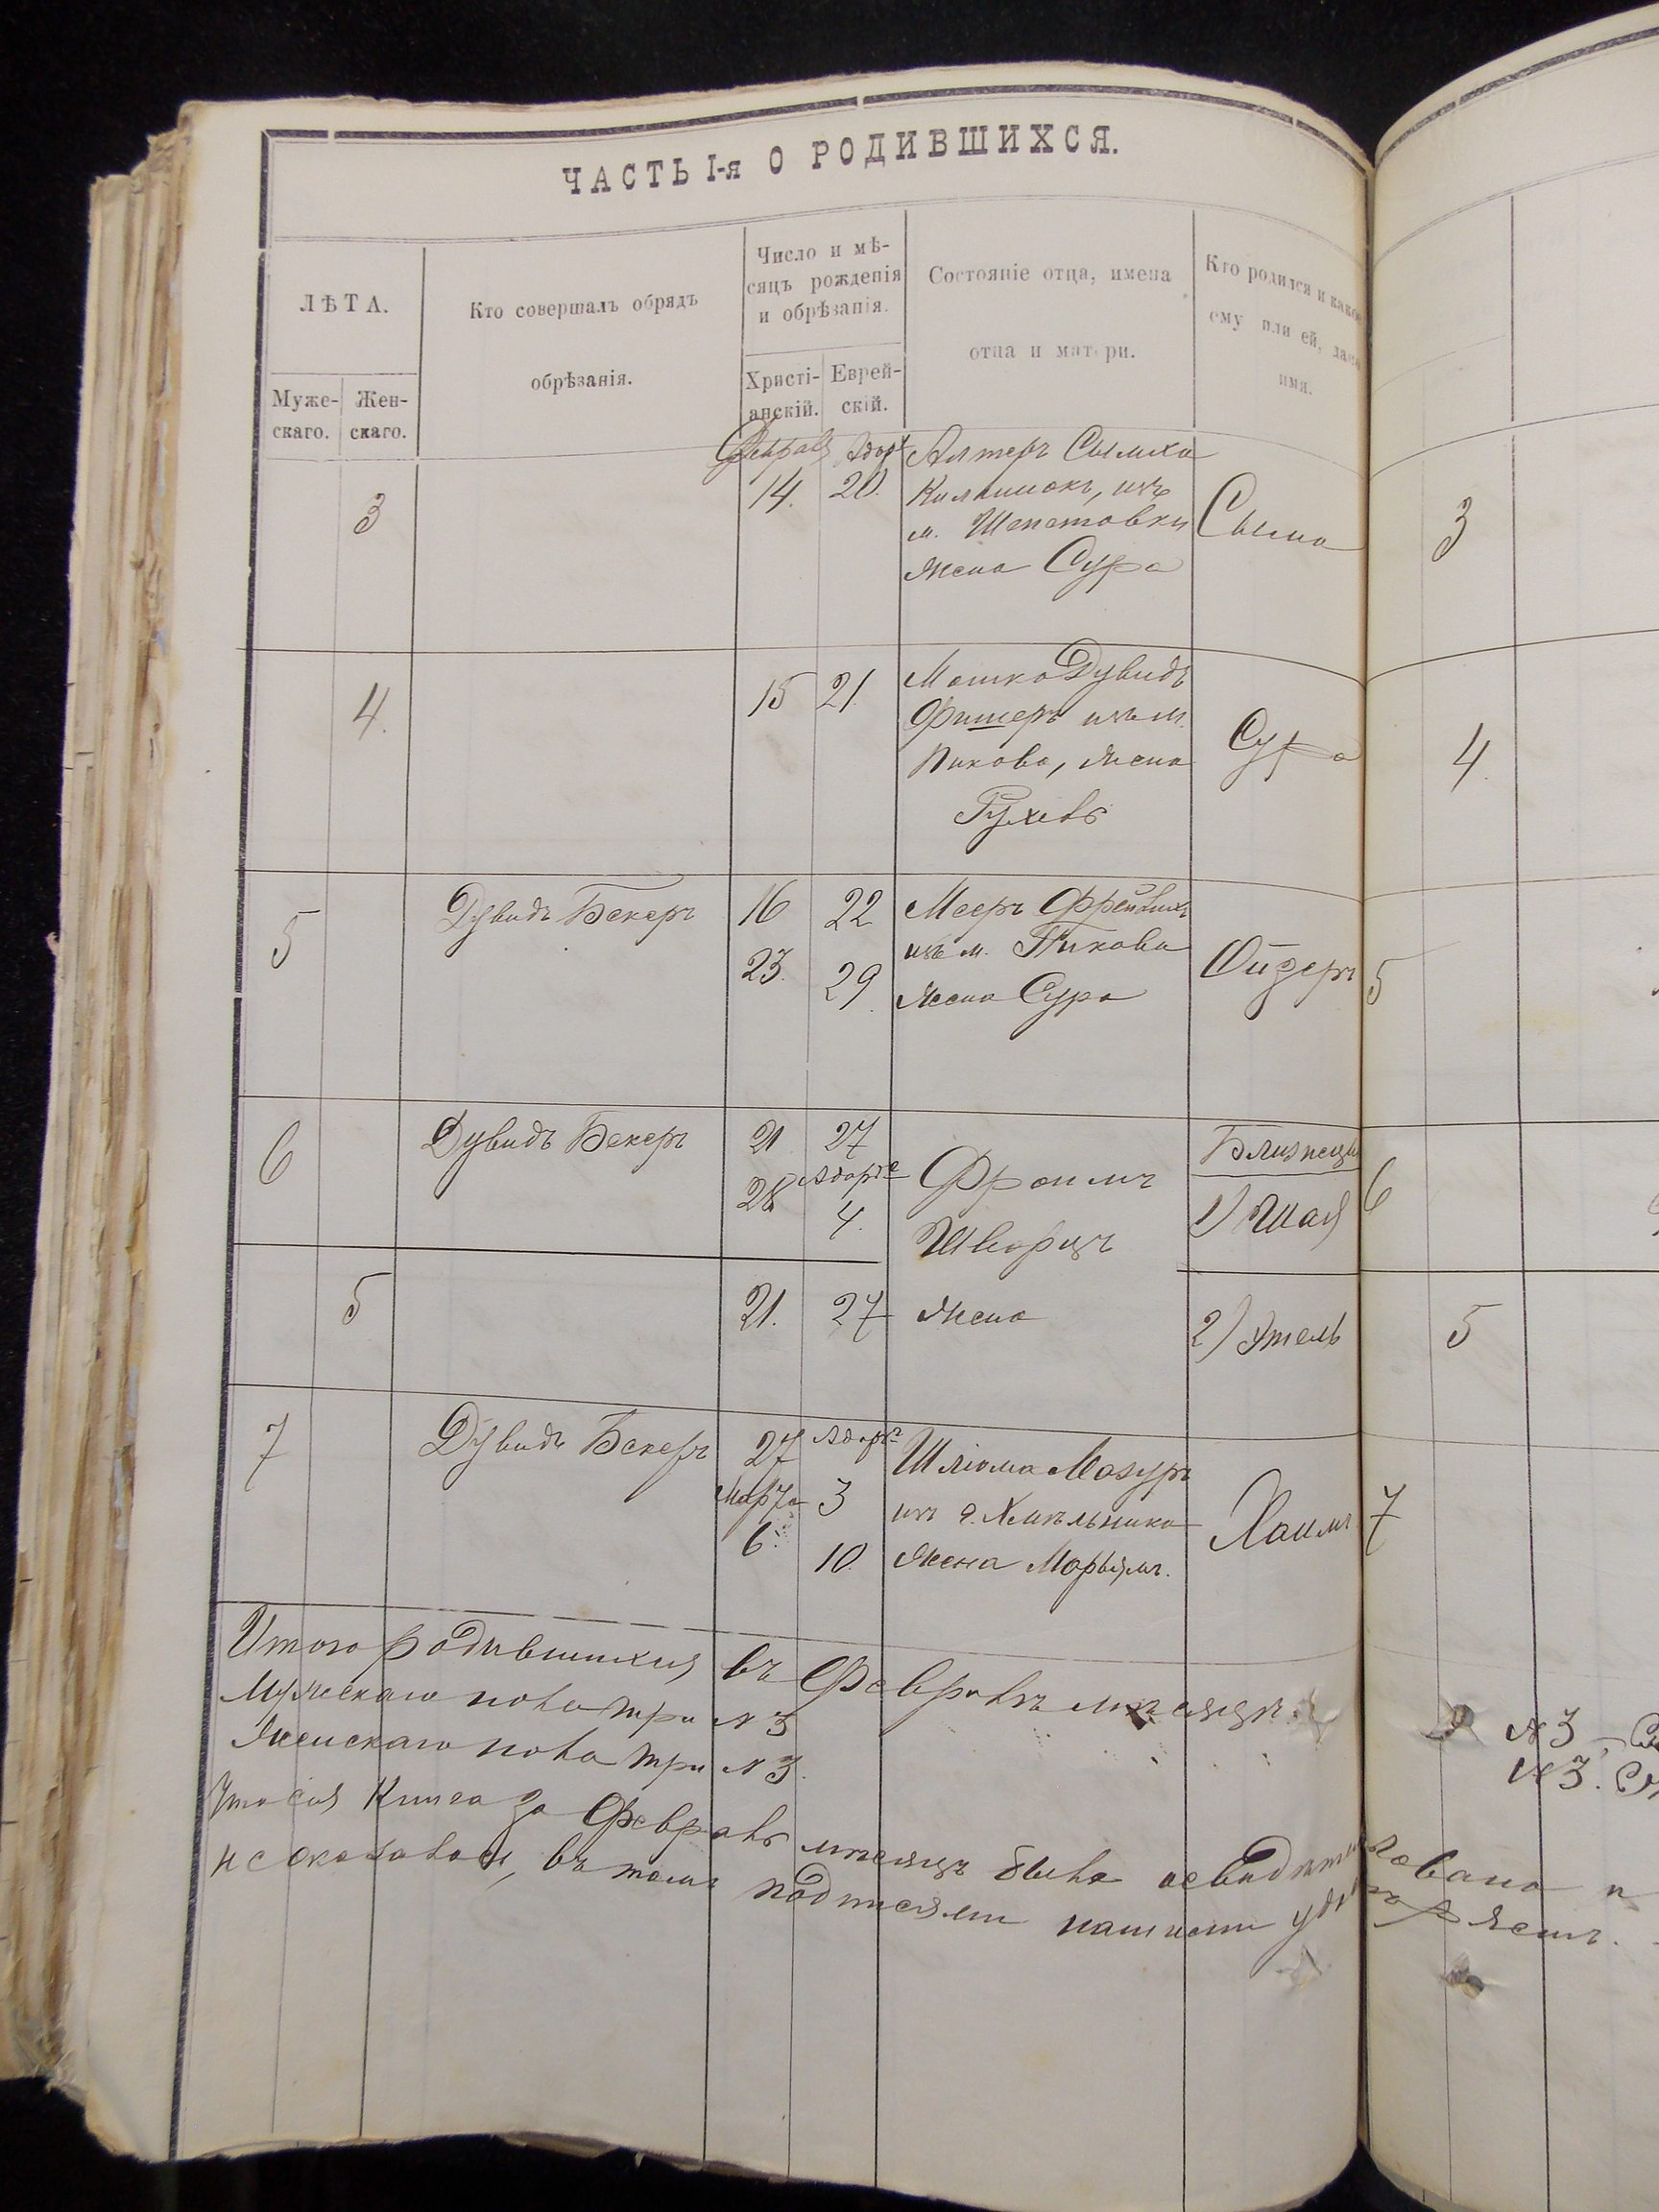 ЧАСТЬ I-я О РОДИВШИХСЯ.
ЛѢТА.
Муже-
скаго.
Жен-
скаго.
Кто совершалъ обрядъ
обрѣзанія.
Число и мѣ-
сяцъ рожденія
и обрѣзанія.
Христі-
анскій.
Еврей-
скій.
Состояніе отца, имена
отца и матери.
Кто родился и какое
ему или ей, дано
имя.
3
14.
20.
Алтеръ Сымха
изъ
м. Шепетовки
жена Сура
Сыма
3
4.
15
21.
Мошко Дувидъ
Фишеръ изъ м.
Пикова, жена
Рухль
Сура
4.
5
Дувидъ Бекеръ
16
23.
22
29.
Мееръ
изъ м. Пикова
жена Сура
Ойзеръ
5
6
Дувидъ Бекеръ
21
28
27
Адаръ 2
4.
Фроимъ
Шварцъ
жена
Близнецы
1) Шая
6
5
21.
27
2) Этель
5
7
Дувидъ Бекеръ
27
Марта
6.
Адаръ 2
3
10.
Шліома Мазуръ
изъ г. Хмѣльника
жена Марьямъ.
Хаимъ
7
Итого родившихся въ Февралѣ мѣсяцѣ.
Мужескаго пола три № 3
Женскаго пола три № 3.
Что сія Книга за Февраль мѣсяцъ была
въ томъ подписями нашими
№ 3
№ 3.